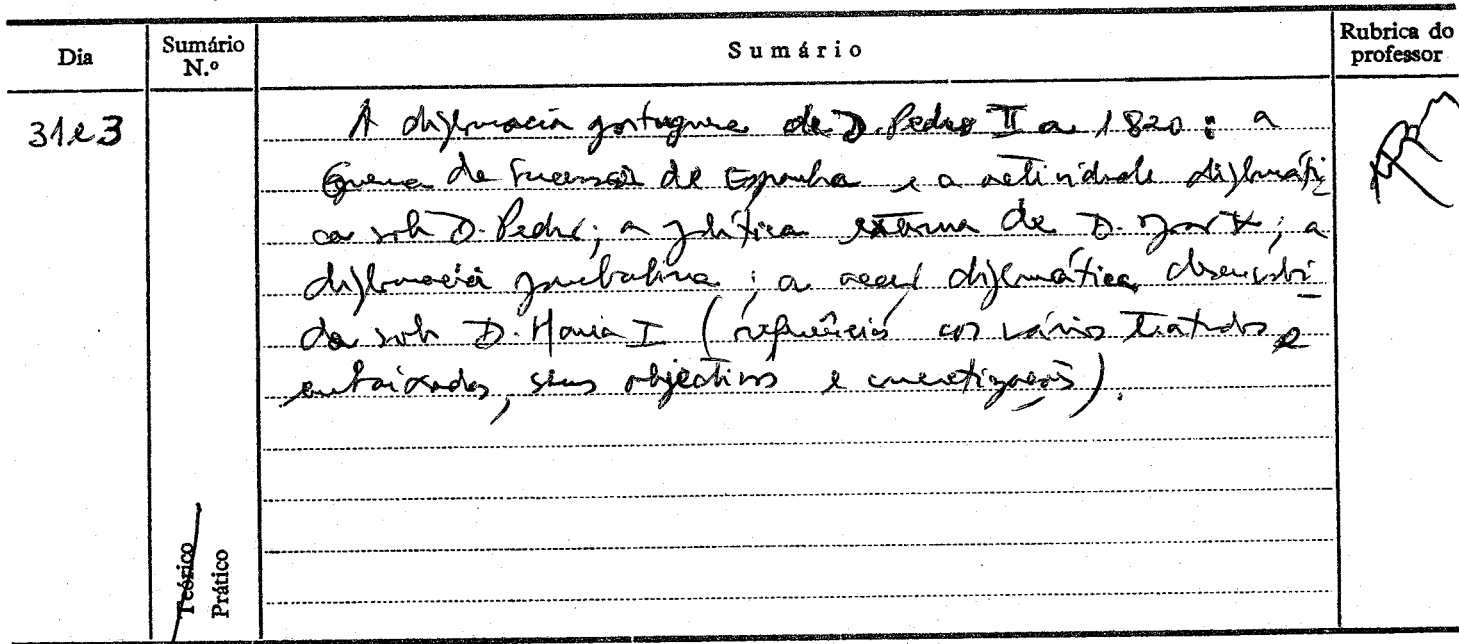 Dia
Sumário
N.º
Sumário
Rubrica do
professor
31 e 3
A diplomacia portuguesa de D. Pedro II a 1820: a
Guerra de Sucessão de Espanha e a actividade diplomáti
ca sob D. Pedro; a política externa de D. João V; a
diplomacia pombalina; a acção diplomática desenvolvi-
da sob D. Maria I (referências aos vários tratados e
embaixadas, seus objectivos e concretizações).
Teórico
Prático